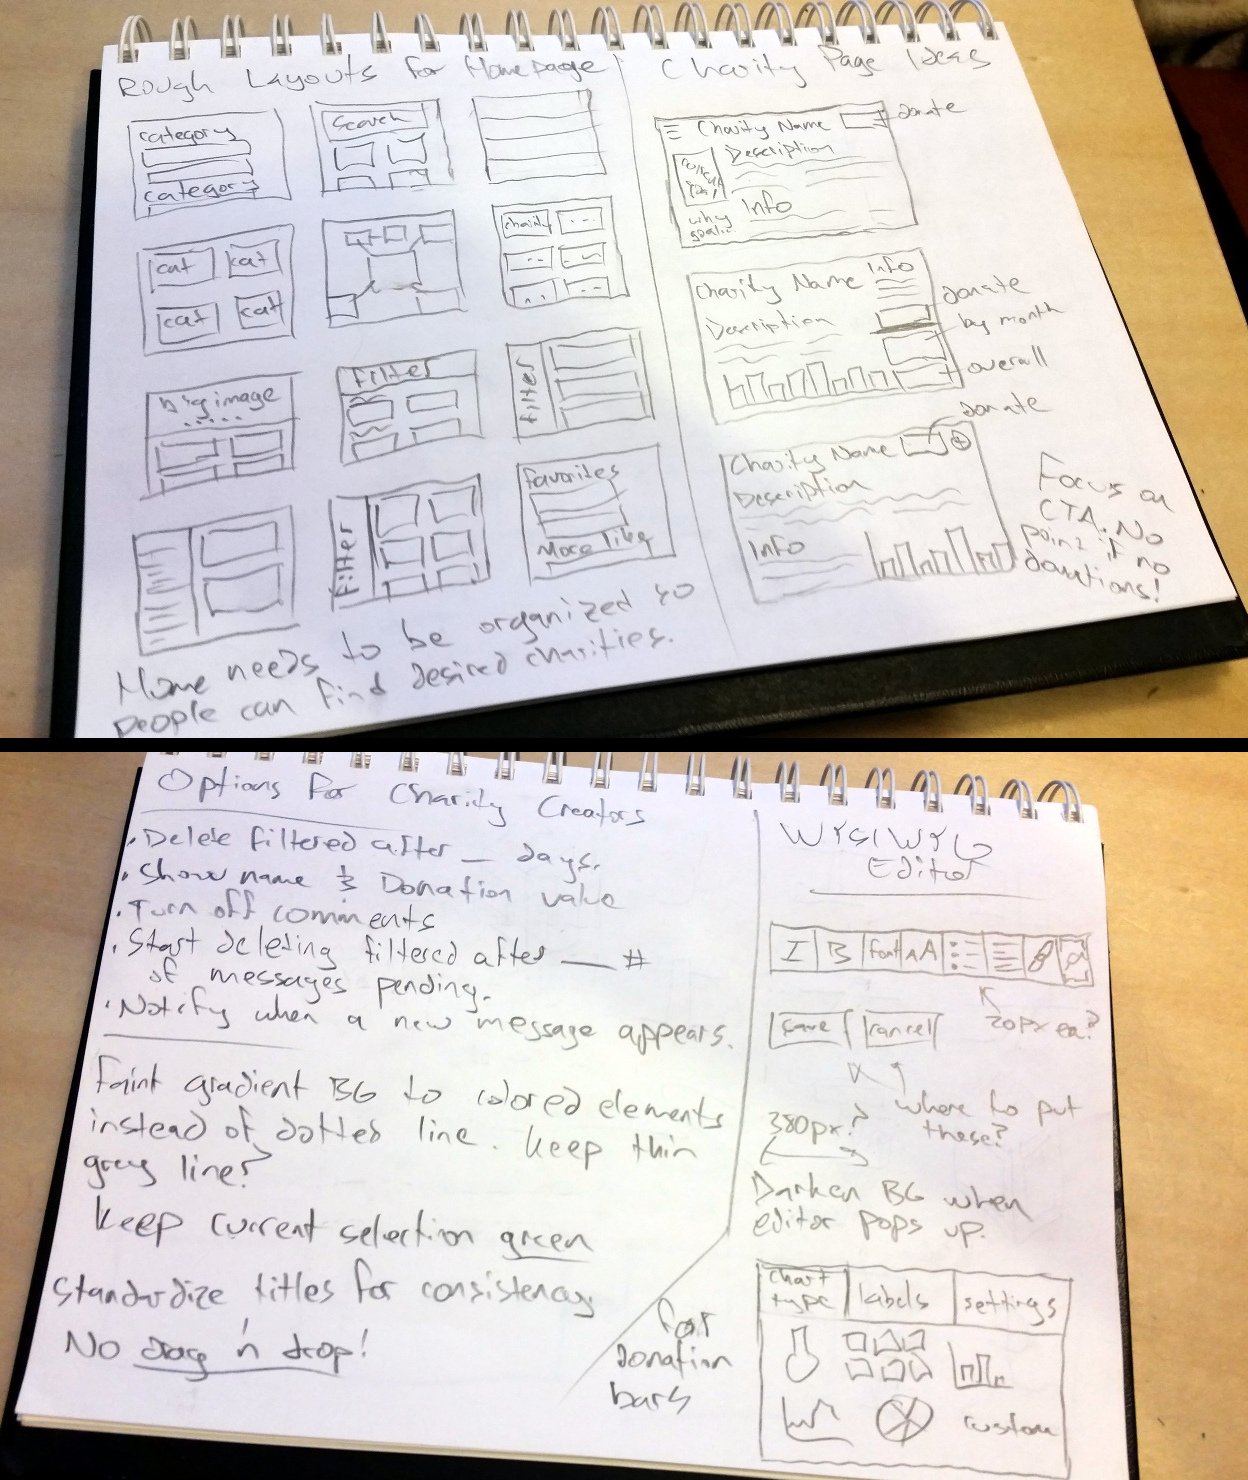 Rough Layouts for Homepage
category
category
Search
cat
cat
cat
cat
charity
big image
Filter
Filter
Filter
Favorites
More like
Home needs to be organized so
people can find desired charities.
Charity Page Ideas
Charity Name
donate
Description
Info
why
goal..
Charity Name
Info
Description
donate
by month
overall
donate
Charity Name
Description
Info
Focus on
CTA. No
point if no
donations!
Options for Charity Creators
• Delete filtered after _ days.
• Show name & Donation value
• Turn off comments
• Start deleting filtered after __ #
of messages pending.
• Notify when a new message appears.
Faint gradient BG to colored elements
instead of dotted line. Keep thin
grey line?
Keep current selection green
Standardize titles for consistency
No drag 'n drop!
WYSIWYG
Editor
I B Font AA
20px ea?
save cancel
where to put
these?
380px?
Darken BG when
editor pops up.
for
donation
bars
chart
type
labels
settings
custom